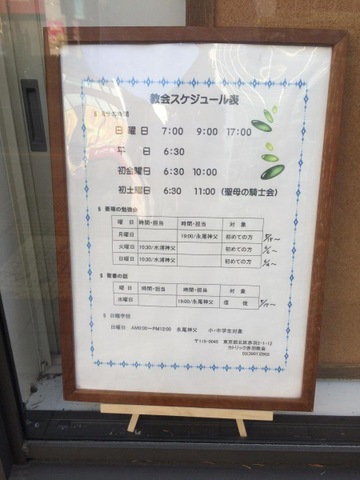 教会スケジュール表
§ ミサの時間
日 曜 日 7:00 9:00 17:00
平 日 6:30
初金曜日 6:30 10:00
初土曜日 6:30 11:00 (聖母の騎士会)
§ 要理の勉強会
曜 日 時間・担当 時間・担当 対 象
月曜日 19:00/永尾神父 初めての方
火曜日 10:30/水浦神父 初めての方
日曜日 10:30/水浦神父 初めての方
§ 聖書の話
曜 日 時間・担当 時間・担当 対 象
水曜日 19:00/永尾神父 信 徒
§ 日曜学校
日曜日 AM9:00~PM12:00 永尾神父 小・中学生対象
〒115-0045 東京都北区赤羽2-1-12
カトリック赤羽教会